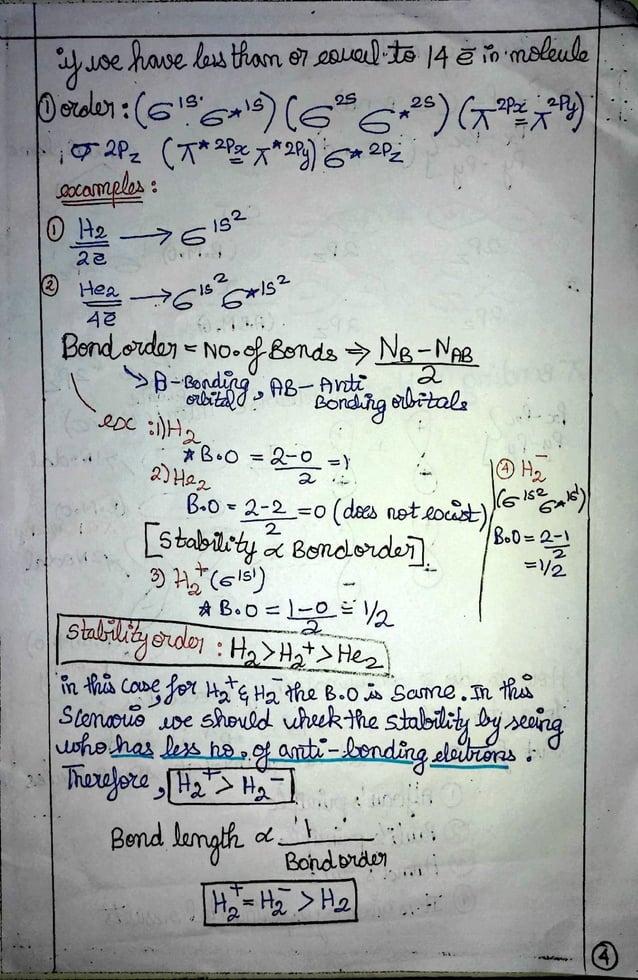 if we have less than or equal to 14 e̅ in molecule
① order : (σ 1s σ* 1s) (σ 2s σ* 2s) (π 2Px = π 2Py)
; σ 2Pz (π* 2Px = π* 2Py) σ* 2Pz
examples :
① H₂ → σ 1s²
2e̅
② He₂ → σ 1s² σ* 1s²
4e̅
Bond order = No. of Bonds ⇒ NB – NAB
2
↳ B – Bonding orbital , AB – Anti Bonding orbitals
ex : 1) H₂
* B.O = 2-0 = 1
2
2) He₂
B.O = 2-2 = 0 (does not exist)
2
[Stability ∝ Bond order]
3) H₂⁺ (σ 1s¹)
* B.O = 1-0 = 1/2
2
④ H₂⁻
(σ 1s² σ* 1s¹)
B.O = 2-1
2
= 1/2
Stability order : H₂ > H₂⁺ > He₂
in this case, for H₂⁺ & H₂⁻ the B.O is same. In this
Scenario we should check the stability by seeing
who has less no. of anti-bonding electrons.
Therefore, H₂⁺ > H₂⁻
Bond length ∝ 1
Bond order
H₂⁺ = H₂⁻ > H₂
④